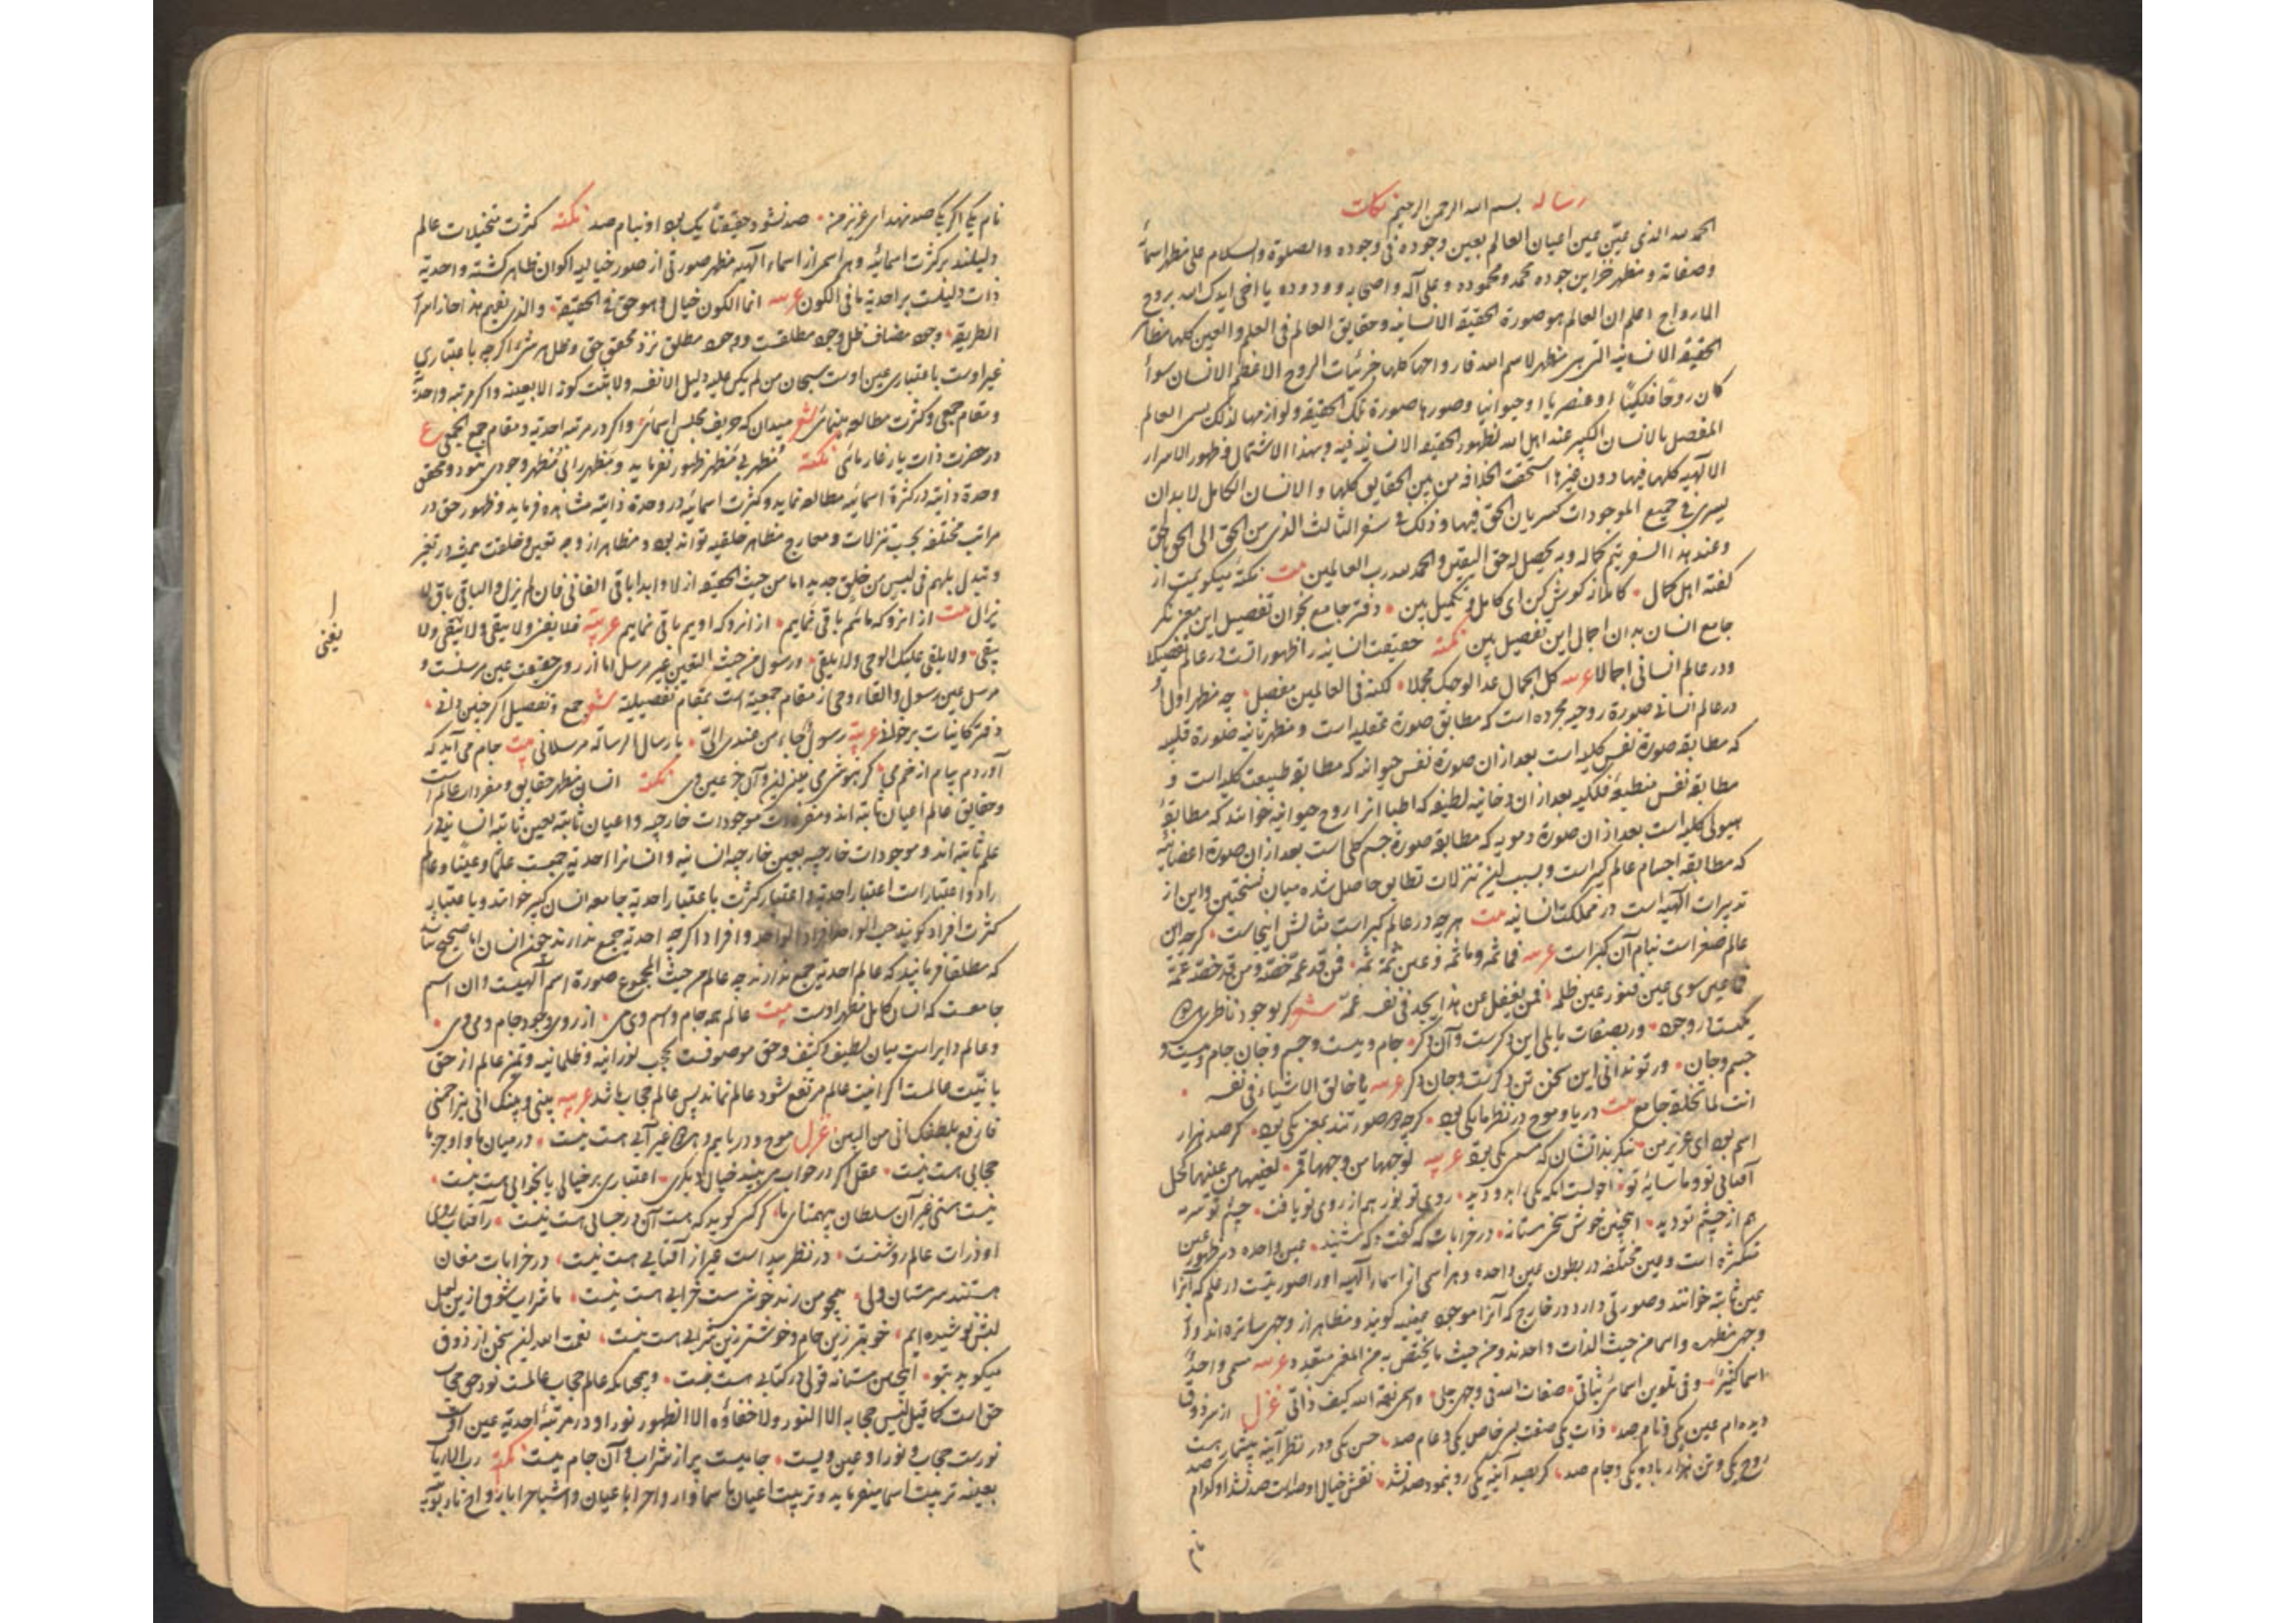 رساله بسم الله الرحمن الرحیم نکات
الحمد لله الذی عیّن عین اعیان العالم بعین وجوده فی وجوده والصلوة والسلام علی مظهر اسمائه
وصفاته و مظهر خزاین جوده محمد ومحموده وعلی آله واصحابه وودوده یا اخی ایدک الله بروح
الارواح اعلم ان العالم هو صورة الحقیقة الانسانیه وحقایق العالم فی العلم والعین کلها مظاهر
الحقیقة الانسانیه التی هی مظهر لاسم الله فارواحها کلها جزئیات الروح الاعظم الانسان سواء
کان روحا فلکیا او عنصریا او حیوانیا وصورها صورة تلک الحقیقة ولوازمها لذلک یسمی العالم
المفصل بالانسان الکبیر عند اهل الله لظهور الحقیقة الانسانیه فیه وبهذا الاشتمال وظهور الاسرار
الالهیه کلها فیها دون غیرها استحقت الخلافه من بین الحقایق کلها والانسان الکامل لابد ان
یسری فی جمیع الموجودات کسریان الحق فیها وذلک فی سفر الثالث الذی من الحق الی الخلق بالحق
وعند هذا السفر یتم کماله وبه یحصل له حق الیقین والحمد لله رب العالمین بیت نکتهٔ میگویمت از
گفته اهل کمال کاملانه گوش کن ای کامل و تکمیل بین دفتر جامع بخوان تفصیل این معنی نگر
جامع انسان بدان اجمال این تفصیل بین نکته حقیقت انسانیه را ظهوراتست در عالم تفصیلا
ودر عالم انسانی اجمالا عربیه کل الجمال غدا لوجهک مجملا لکنه فی العالمین مفصل چه مظهر اول او
در عالم انسانی صورة روحیه مجرده است که مطابق صورة عقلیه است و مظهر ثانیه صورة قلبیه
که مطابقه صورة نفس کلیه است بعد از ان صورة نفس حیوانیه که مطابقه طبیعت کلیه است و
مطابقه نفس منطبعهٔ فلکیه بعد از ان دخانیه لطیفه که اطبا انرا روح حیوانیه خوانند که مطابقه
هیولی کلیه است بعد از ان صورة دمویه که مطابقه صورة جسم کلی است بعد از ان صورة اعضائیه
که مطابقه اجسام عالم کبیر است وبسبب این تنزلات تطابق حاصل شده میان نسختین واین از
تدبیرات الهیه است در مملکت انسانیه بیت هرچه در عالم کبیر است مثالش اینجاست گرچه این
عالم صغر است بنام آن کبر است عربیه فما ثمه وما ثمه وعین ثمه ثمه فمن قد عمه خصه ومن قد خصه عمه
فما عین سوی عین فنور عینه ظلمه فمن یغفل عن هذا یجد فی نفسه غمه شعر گر بوجود ناظری
یکیست در وجود وربصفات مایلی این دگرست وآن دگر جام ومیست وجسم وجان جام ومیست و
جسم وجان ور تو ندانی این سخن تن دگرست وجان دگر عربیه یا خالق الاشیاء فی نفسه
انت لما تخلقه جامع بیت دریا و موج در نظر ما یکی بود گرچه دو صورتند بمعنی یکی بود گر صد هزار
اسم بود ای عزیز من بنگر بذاتشان که مسمی یکی بود عربیه
آفتابی تو وما سایهٔ تو احولست آنکه یکی را بدو دید روی تو نور هم از روی تو یافت چشم تو سرمه
هم از چشم تو دید اینچنین خوش سخن مستانه در خرابات که گفت و که شنید عین واحده در ظهور عین
متکثره است وعین مختلفه در بطون عین واحده وهر اسمی از اسماء الهیه اورا صورتیست در علم که آنرا
عین ثابته خوانند وصورتی دارد در خارج که آنرا موجود عینیه گویند ومظاهر از وجهی ساتره اند واز
وجهی مظهره واسما من حیث الذات واحدند ومن حیث ما یختص به من المعنی متعدد عربیه مسمی واحد
اسما کثیر وفی تلوین اسمائی ثباتی صفات الله فی وجهی جلی واسمی نعمة الله کیف ذاتی غزل از سر ذوق
دیده ام عین یکی ونام صد ذات یکی صفت بسی خاص یکی وعام صد حسن یکی ودر نظر آینه بیشمار هست
روح یکی وتن هزار باده یکی وجام صد گر بصد آینه یکی رو بنمود صد نشد نقش خیال او صداست صد نشد او کدام صد
نام
نام یکی اگر یکی صد بنهد ای عزیز من صد نشود حقیقتا یک بود او بنام صد نکته کثرت تخیلات عالم
دلیلند بر کثرت اسمائیه وهر اسم از اسماء الهیه مظهر صورتی از صور خیالیه اکوان ظاهر گشته واحدیه
ذات دلیلست بر احدیه ما فی الکون عربیه انما الکون خیال وهو حق فی الحقیقة والذی یفهم هذا حاز اسرار
الطریقة وجود مضاف ظل وجود مطلقست ووجود مطلق نزد محقق حق وظل هر شیء اگرچه باعتباری
غیر اوست باعتباری عین اوست سبحان من لم یکن علیه دلیل الا نفسه ولا یثبت کونه الا بعینه واگر مرتبه واحدیه
ومقام جمعی وکثرت مطالعه بنمائی شعر میدان که حریف مجلس اسمائی واگر در مرتبه احدیه ومقام جمع الجمعی ع
در حضرت ذات یار غار مائی نکته مُظهر بی مَظهر ظهور نفرماید ومظهر را بی مُظهر وجودی نبود ومحقق
وحدة ذاتیه در کثرة اسمائیه مطالعه نماید وکثرت اسمائیه در وحدة ذاتیه مشاهده فرماید وظهور حق در
مراتب مختلفه بحسب تنزلات ومعارج مظاهر خلقیه تواند بود ومظاهر از وجه تعین وخلقت همیشه در تغیر
وتبدل بل هم فی لبس من خلق جدید اما من حیث الحقیقه ازلا وابدا باقی الفانی فان لم یزل والباقی باق لا
یزال بیت از انرو که مائیم باقی نمایم از انرو که اویم باقی نمایم عربیه فلا یفنی ولا یبقی ولا یفنی ولا
یبقی ولا یلقی علیک الوحی ولا یلقی ورسول من حیث التعین غیر مرسل اما از روی حقیقت عین مرسلست و
مرسل عین رسول والقاء وحی از مقام جمعیه است بمقام تفصیلیه شعر جمع وتفصیل اگر چنین دانی
دفتر کاینات بر خوانی عربیه رسول جاء من عندی الی بارسال الرساله مرسلاتی بیت جام می آید که
آوردم پیام از خم می نکته انسان مظهر حقایق ومفردات عالم است
وحقایق عالم اعیان ثابته اند ومفردات موجودات خارجیه واعیان ثابته بعین ثابته انسانیه در
علم ثابته اند وموجودات خارجیه بعین خارجیه انسانیه وانسانرا احدیه جمعست علما وعینا وعالم
را دو اعتبار است اعتبار احدیه واعتبار کثرت باعتبار احدیه جامعه انسان کبیر خوانند وباعتبار
کثرت افراد گویند وافراد اگرچه احدیه جمع ندارند چون انسان اما صحیح نباشد
که مطلقا فرمایند که عالم احدیه جمع ندارند چه عالم من حیث المجموع صورة اسم الهیست وان اسم
جامعست که انسان کامل مظهر اوست بیت عالم همه جام وهم وی می از روی وجود جام ومی وی
وعالم دایر است میان لطیف وکثیف وحق موصوفست بحجب نورانیه وظلمانیه وتمیز عالم از حق
بانیّت عالمست اگر انیت عالم مرتفع شود عالم نماند پس عالم حجاب باشد عربیه بینی وبینک انی یزاحمنی
فارفع بلطفک انی من البین غزل موج ودریاییم وهر دو غیر آبی هست نیست در میان ما واو جز ما
حجابی هست نیست عقل اگر در خواب می بیند خیال دیگری اعتباری بر خیالی یا بخوابی هست نیست
نیست هستی غیر آن سلطان بیهمتای ما گر کسی گوید که هست آن در حسابی هست نیست زآفتاب روی
او ذرات عالم روشنست در نظر پیداست غیر از آفتابی هست نیست در خرابات مغان
هستند سرمستان ولی همچو من رند خوش مست خرابی هست نیست ما شراب ذوق از ین لعل
لبش نوشیده ایم خوبتر زین جام وخوشتر زین شرابی هست نیست نعمت الله این سخن از ذوق
میگوید بتو اینچنین مستانه قولی در کتابی هست نیست وهمچنانکه عالم حجاب عالمست نور حق حجاب
حق است کما قیل لیس حجابه الا النور ولا خفاؤه الا الظهور نور او در مرتبهٔ احدیه عین اوست
نورست حجاب و نور او عین ویست جامیست پر از شراب وآن جام میست نکته رب الارباب
بعینه تربیت اسما میفرماید وتربیت اعیان باسما وارواح را باعیان واشباح را بارواح تا ربوبیه
یفنی